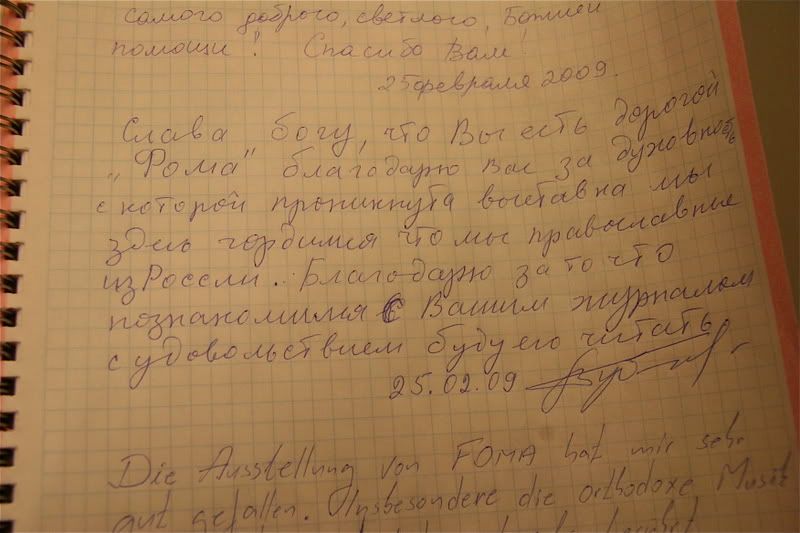 самого доброго, светлого, Божией
помощи! Спасибо Вам!
25 февраля 2009.
Слава богу, что Вы есть дорогой
„Фома" благодарю вас за духовность
с которой проникнута выставка мы
здесь гордимся что мы православные
из России. Благодарю за то что
познакомился с Вашим журналом
с удовольствием буду его читать
25.02.09
Die Ausstellung von FOMA hat mir sehr
gut gefallen. Insbesondere die orthodoxe Musik